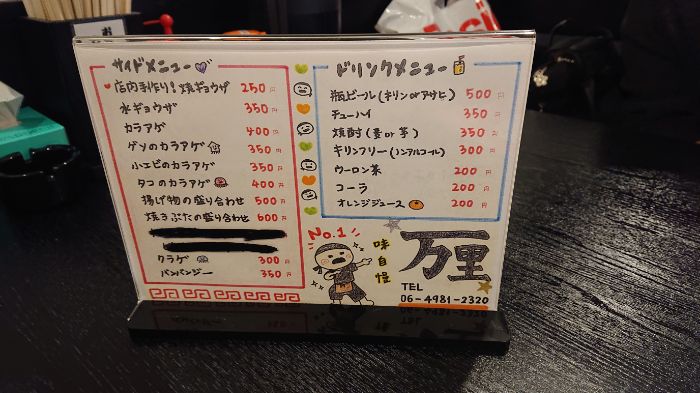 サイドメニュー
店内手作り！焼ギョウザ 250円
水ギョウザ 350円
カラアゲ 400円
ゲソのカラアゲ 350円
小エビのカラアゲ 350円
タコのカラアゲ 400円
揚げ物の盛り合わせ 500円
焼きぶたの盛り合わせ 600円
クラゲ 300円
バンバンジー 350円
ドリンクメニュー
瓶ビール（キリンorアサヒ） 500円
チューハイ 350円
焼酎（麦or芋） 350円
キリンフリー（ノンアルコール） 300円
ウーロン茶 200円
コーラ 200円
オレンジジュース 200円
No.1
味自慢
万里
TEL
06-4981-2320